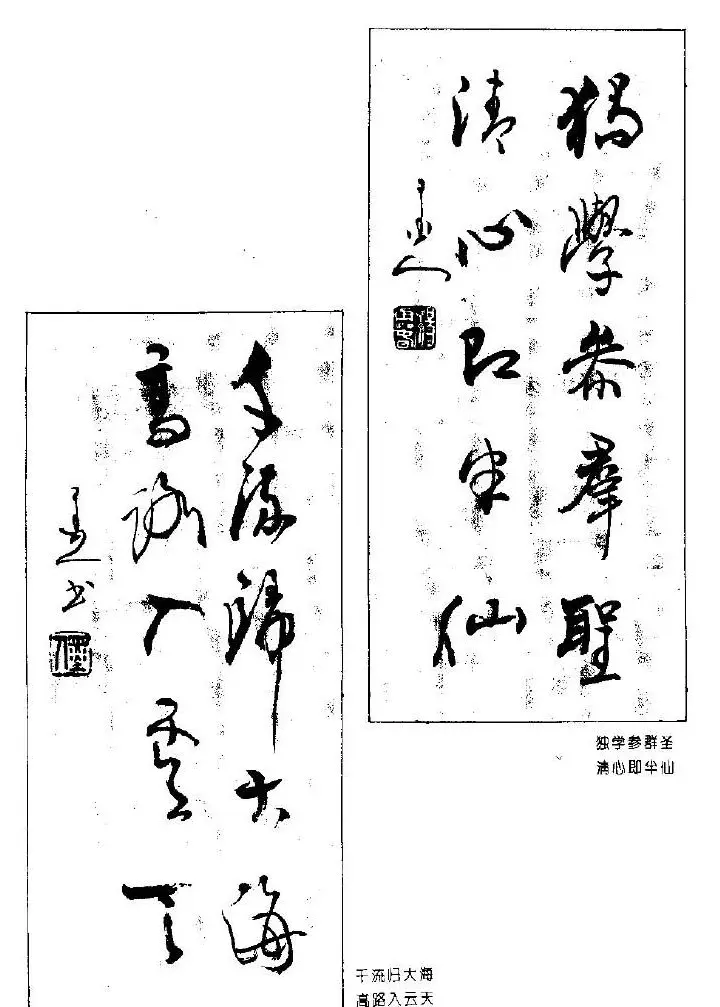 獨學參羣聖
清心即半仙
独学参群圣
清心即半仙
千流歸大海
高路入雲天
书
千流归大海
高路入云天